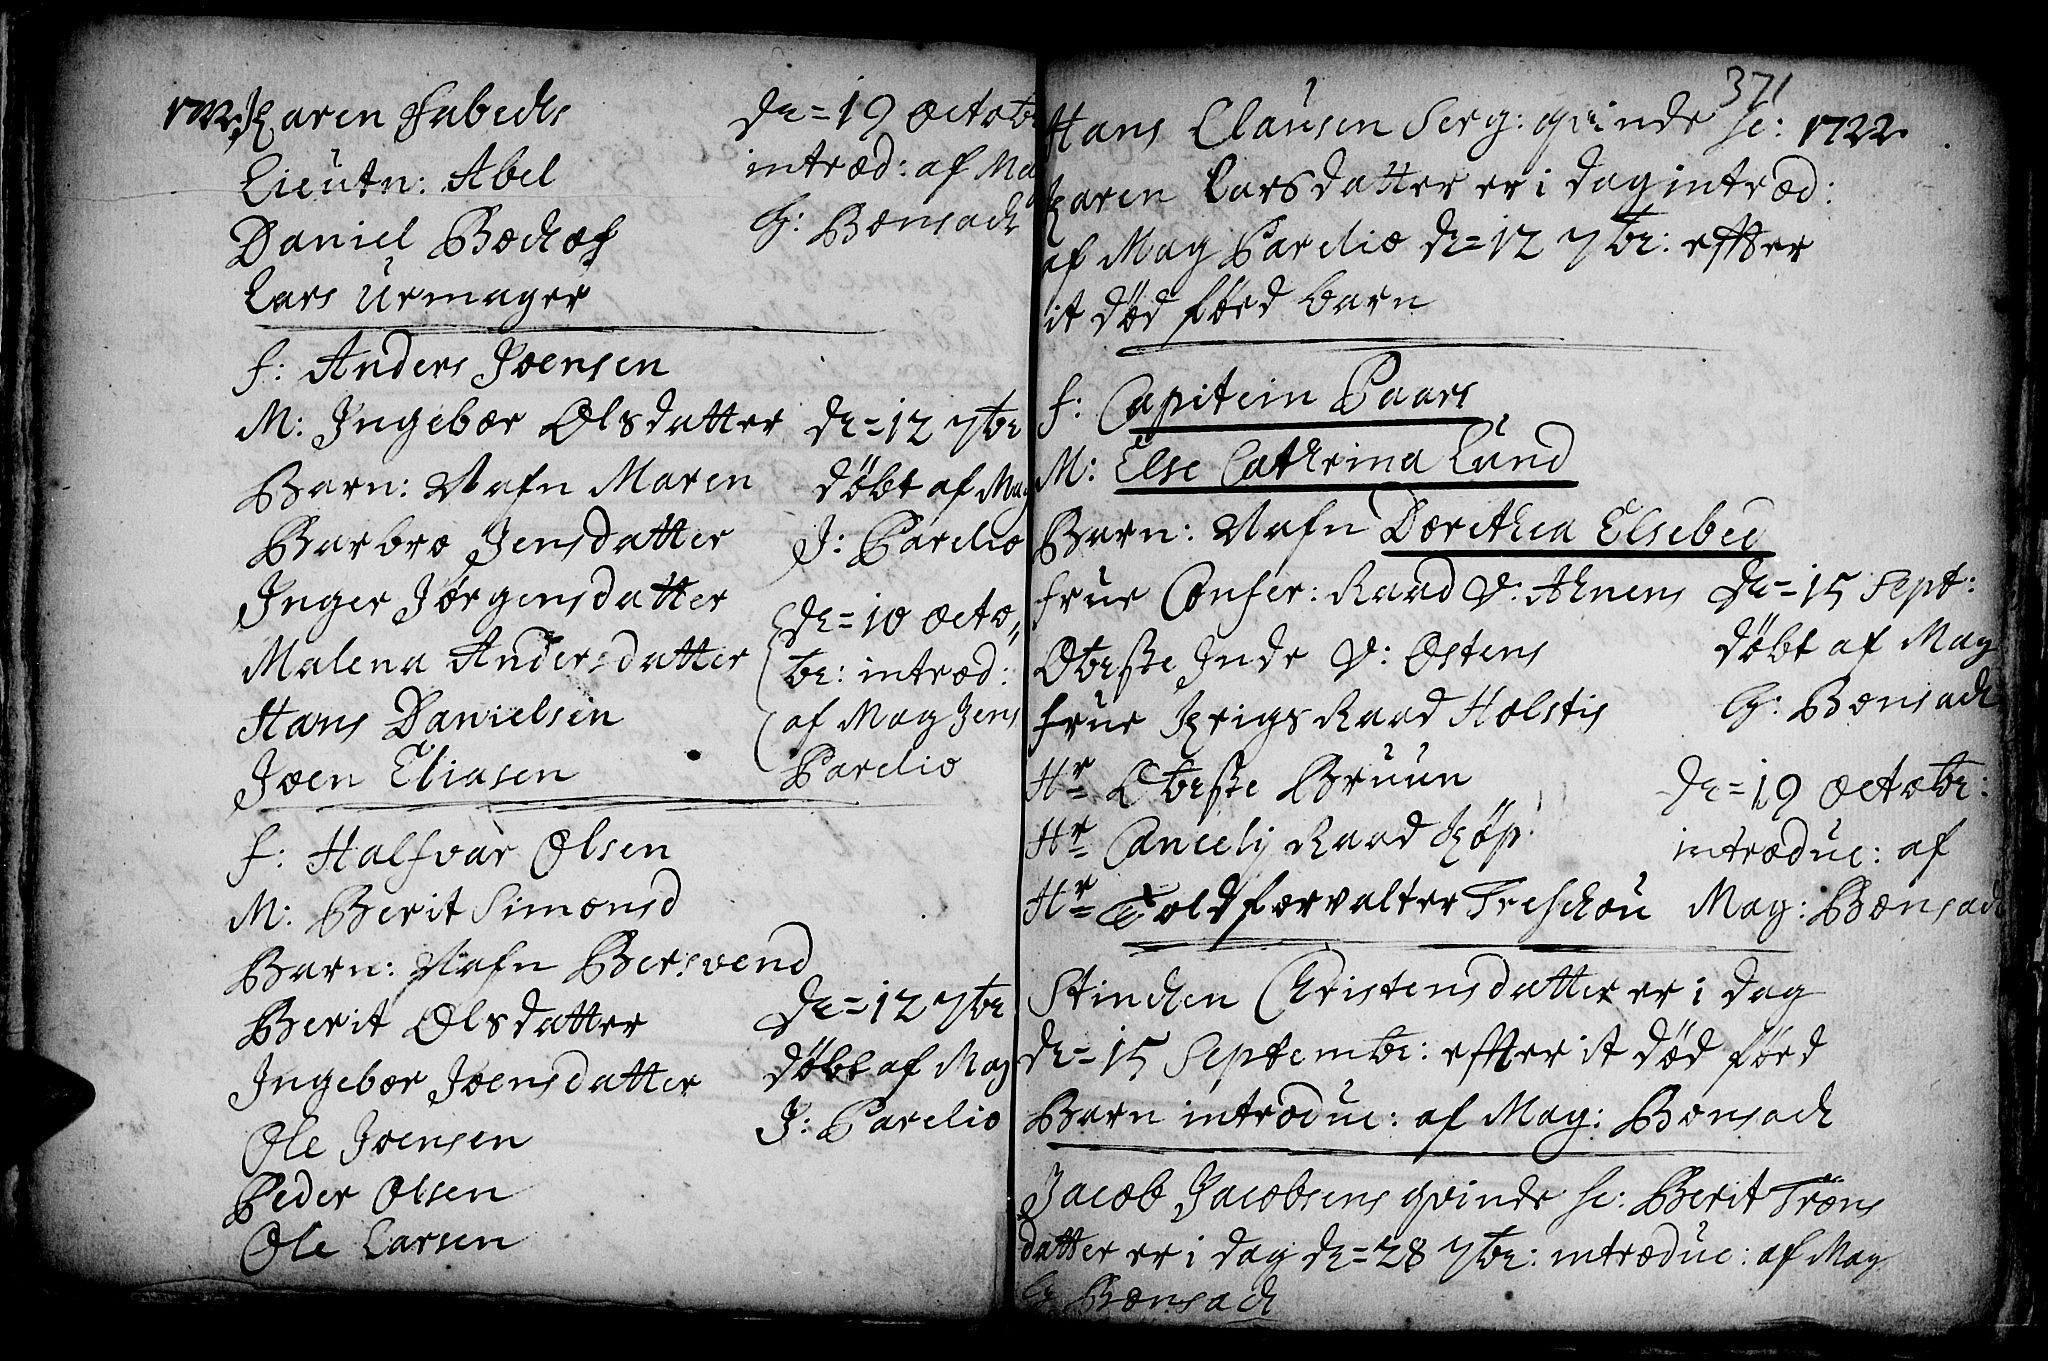 1722. Karen Fabechs
Lieutn: Abel
Daniel Bochof
Lars Urmager
de=19 octobr
introd: af Ma
G: Bonsach
f: Anders Joensen
M: Ingebor Olsdatter
Barn: Nafn Maren
Barbro Jensdatter
Inger Jørgensdatter
Malena Andersdatter
Hans Danielsen
Joen Eliasen
de=12 7br
døbt af Mag
J: Parelio
de=10 octo„
br: introd:
af Mag Jens
Parelio
f: Halfvar Olsen
M: Berit Simonsd
Barn: Nafn Bersvend
Berit Olsdatter
Ingebor Joensdatter
Ole Joensen
Peder Olsen
Ole Larsen
de=12 7br
døbt af Mag
J: Parelio
371
1722.
Hans Clausen Serg: qvinde he:
Karen Larsdatter er i dag introd:
af Mag Parelio de=12 7br: effter
it død føed barn
f: Capitein Paars
M: Else Cathrina Lund
Barn: Nafn Dorithea Elsebe
frue Confer: Raad V: Ahnens
Obrste Inde V: Ostens
frue Krigs Raad Holstis
Hr Obrste Bruun
Hr Cancelij Raad Køp
Hr Toldforvalter Treschou
de=15 Sept:
døbt af Mag
G: Bonsach
de=19 octobr:
introduc: af
Mag: Bonsach
Stinchen Christensdatter er i dag
de=15 Septembr: effter it død føed
Barn introduc: af Mag: Bonsach
Jacob Jacobsens qvinde he: Berit Trøns
datter er i dag de=28 7br: introduc: af Mag
G Bonsach